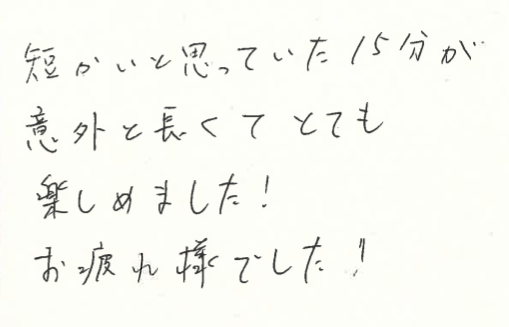 短かいと思っていた15分が
意外と長くてとても
楽しめました!
お疲れ様でした!